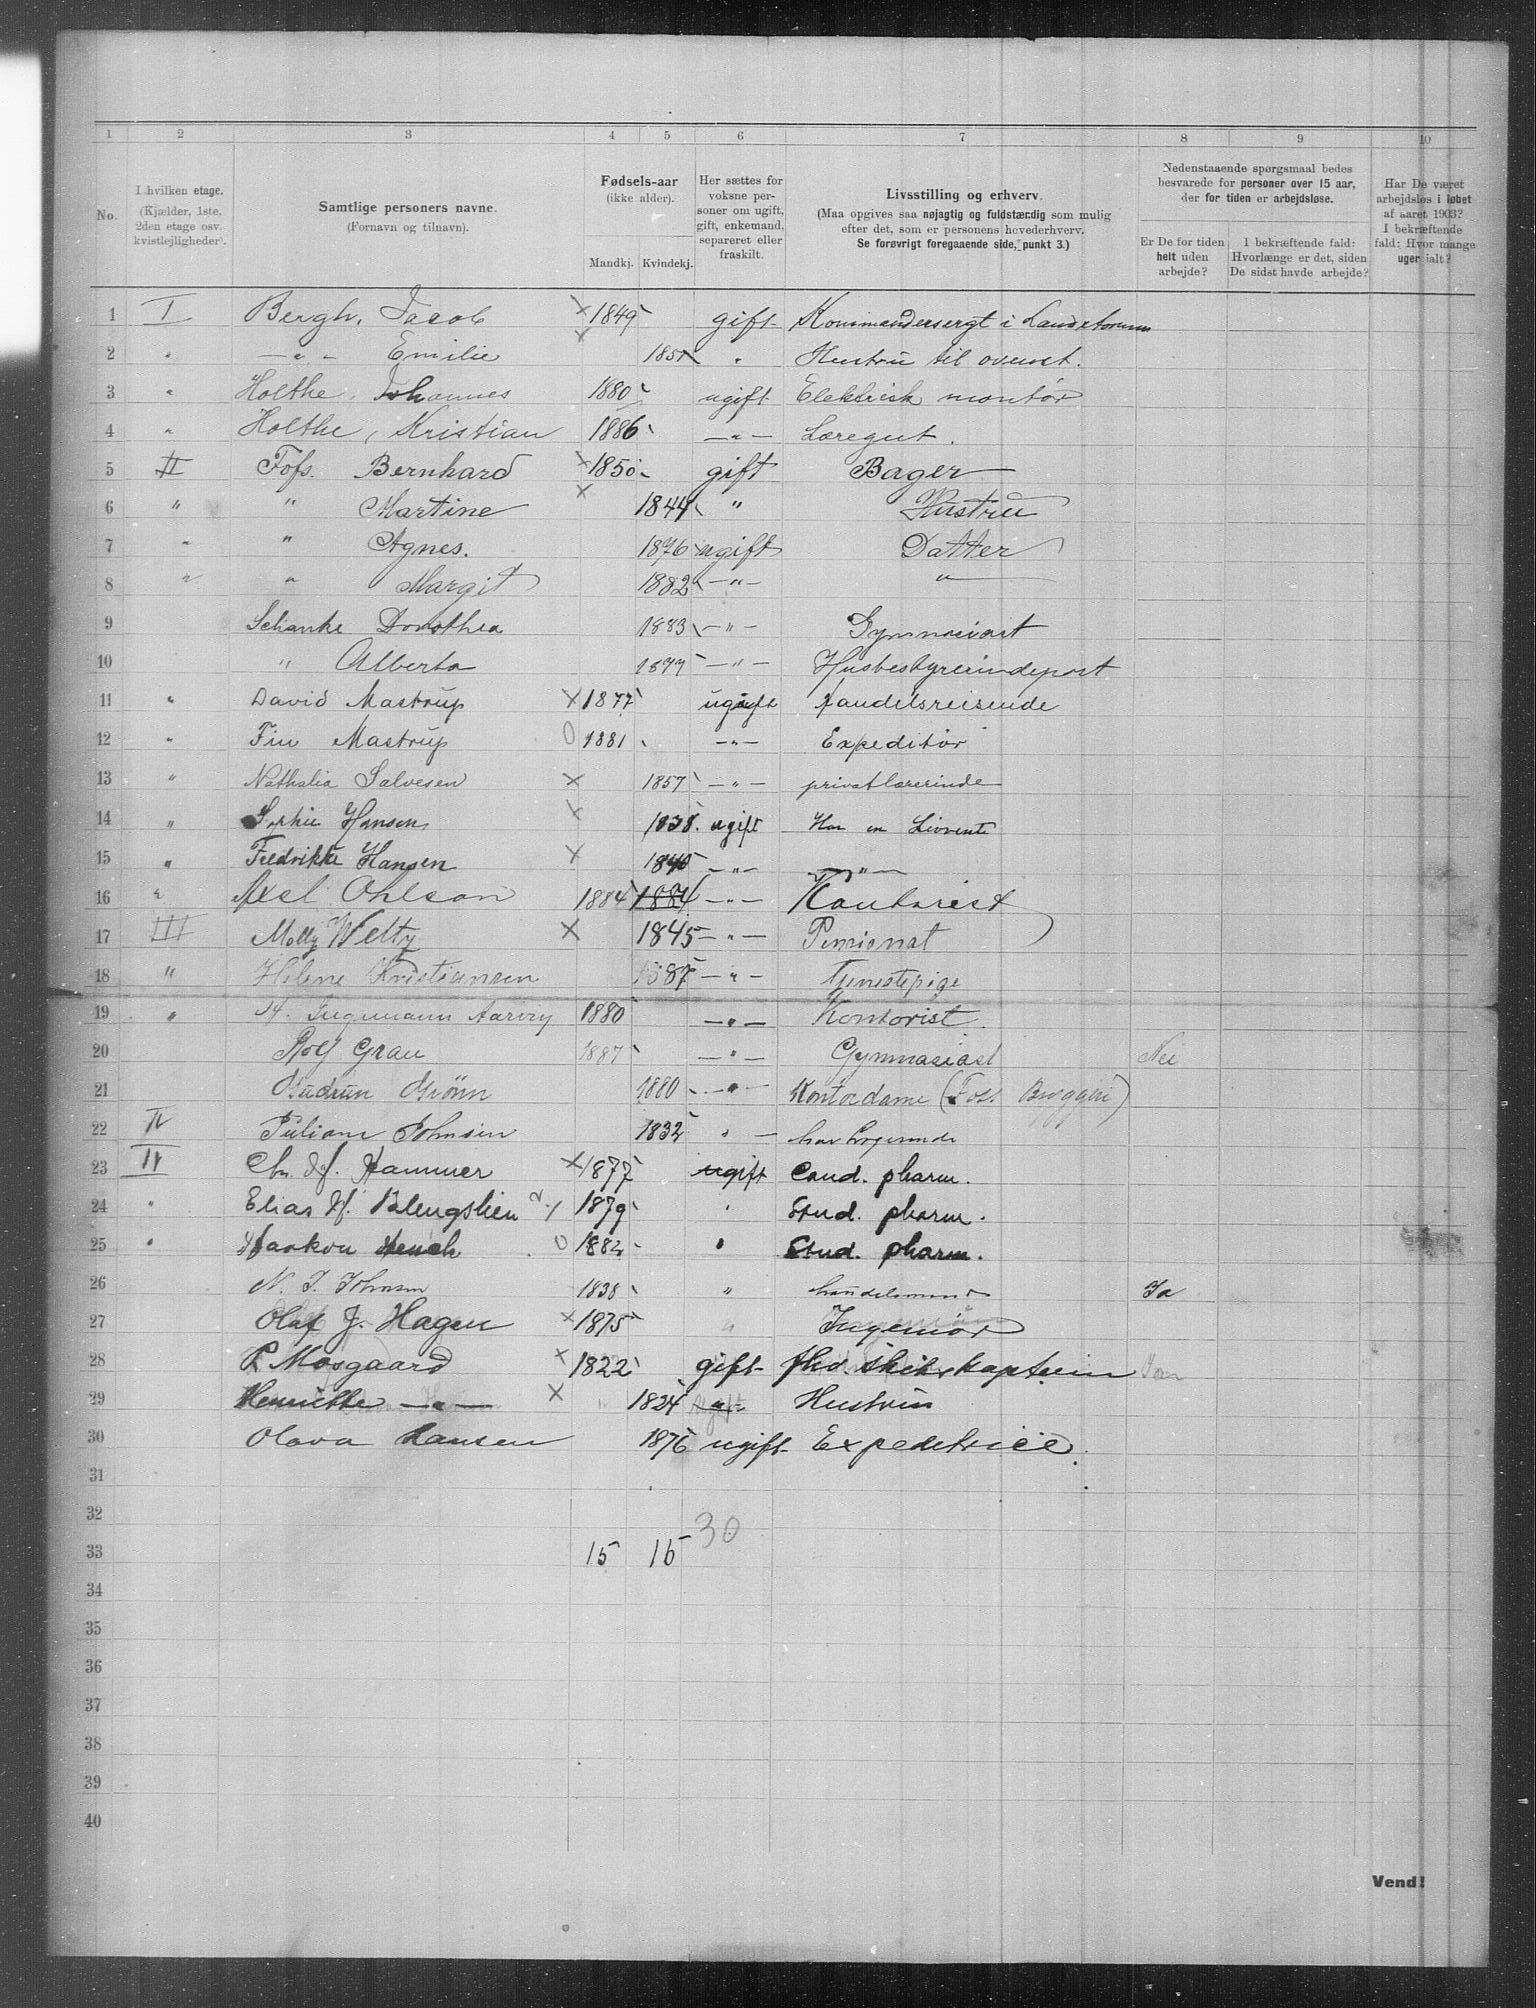 1 2 3 4 5 6 7 8 9 10
No.
I hvilken etage. (Kjælder, 1ste, 2den etage osv. kvistlejligheder).
Samtlige personers navne. (Fornavn og tilnavn).
Fødsels-aar (ikke alder).
Mandkj. Kvindekj.
Her sættes for voksne personer om ugift, gift, enkemand, separeret eller fraskilt.
Livsstilling og erhverv. (Maa opgives saa nøjagtig og fuldstændig som mulig efter det, som er personens hovederhverv. Se forøvrigt foregaaende side, punkt 3.)
Nedenstaaende spørgsmaal bedes besvarede for personer over 15 aar, der for tiden er arbejdsløse.
Er De for tiden helt uden arbejde?
I bekræftende fald: Hvorlænge er det, siden De sidst havde arbejde?
Har De været arbejdsløs i løbet af aaret 1903? I bekræftende fald: Hvor mange uger ialt?
1 I Bergh, Jacob × 1849 gift Kommandersergt i Landstorum
2 " — " — Emilie × 1851 " Hustru til overst.
3 " Holthe, Johannes 1880 ugift Elektrisk montør
4 " Holthe, Kristian 1886 — " — Læregut.
5 II Fofs. Bernhard × 1850 gift Bager
6 " " Martine × 1844 " Hustru
7 " " Agnes. 1876 ugift Datter
8 " " Margit 1882 — " — "
9 Schanke Dorothea 1883 — " — Gymnasiast
10 " Alberta 1877 — " — Husbestyrerindepost
11 " David Mastrup × 1877 ugift Handelsreisende
12 " Fin Mastrup 0 1881 — " — Expeditør
13 " Nathalia Salvesen × 1857 — " — privatlærerinde
14 " Sophie Hansen × 1838. ugift Har en Livrente
15 " Fredrikke Hansen × 1840 — " — — " —
16 " Axel Ohlson 1884 1884 — " — Kontorist
17 III Molly Welty × 1845 — " — Pensionat
18 " Helene Kristiansen 1887 — " — Tjenestepige
19 " Ingemann Aarvig 1880 — " — Kontorist.
20 Rolf Grau 1887 — " — Gymnasiast Nei
21 Gudrun Grönn 1880 — " — Kontordame (Foss Bryggeri)
22 IV Juliane Johnsen 1832 " — har Logerende
23 IV Chr. H. Hammer × 1877 ugift Cand. pharm.
24 " Elias H. 1879 " Stud. pharm.
25 " Haakon 0 1882 " Stud. pharm.
26 N. J. Johnsen 1838 " handelsmand Ja
27 Olaf J. Hagen × 1875 " Ingeniør
28 P. Mosgaard × 1822 gift fhv. skibskaptein
29 Henriette — " — × 1824 " Hustru
30 Olava Hansen 1876 ugift Expeditrice.
31
32 30
33 15 15
34
35
36
37
38
39
40
Vend!